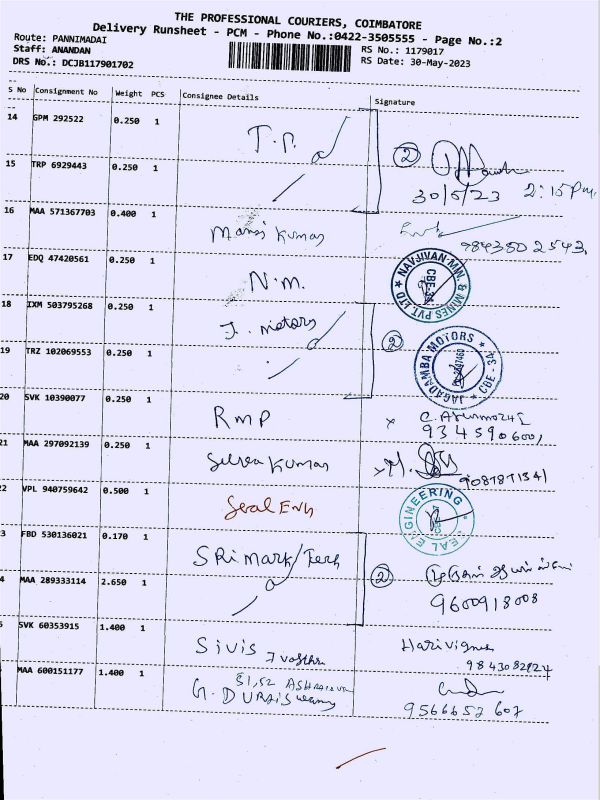 THE PROFESSIONAL COURIERS, COIMBATORE
Delivery Runsheet - PCM - Phone No.:0422-3505555 - Page No.:2
Route: PANNIMADAI
Staff: ANANDAN
DRS No.: DCJB117901702
RS No.: 1179017
RS Date: 30-May-2023
S No Consignment No Weight PCS Consignee Details Signature
14 GPM 292522 0.250 1
T.P. 2
15 TRP 6929443 0.250 1
30/5/23 2:15 Pm.
16 MAA 571367703 0.400 1
Manoj Kumar
9843502543,
17 EDQ 47420561 0.250 1
N.M.
NAVJIVAN MIN. & MINES PVT. LTD
CBE-34
18 IXM 503795268 0.250 1
J. motors 2
JAGADAMBA MOTORS
CBE - 34
19 TRZ 102069553 0.250 1
20 SVK 10390077 0.250 1
RMP
21 MAA 297092139 0.250 1
Selva Kumar
2 VPL 940759642 0.500 1
Seal Eng
SEAL ENGINEERING
3 FBD 530136021 0.170 1
SRi mark/Tech 2
4 MAA 289333114 2.650 1
9600918008
SVK 60353915 1.400 1
Sivis
Harivignes
MAA 600151177 1.400 1
G. DURAISwamy
9566652607